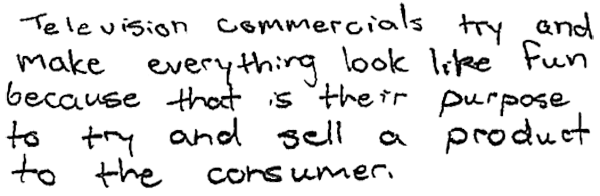 Television commercials try and
make everything look like fun
because that is their purpose
to try and sell a product
to the consumer.